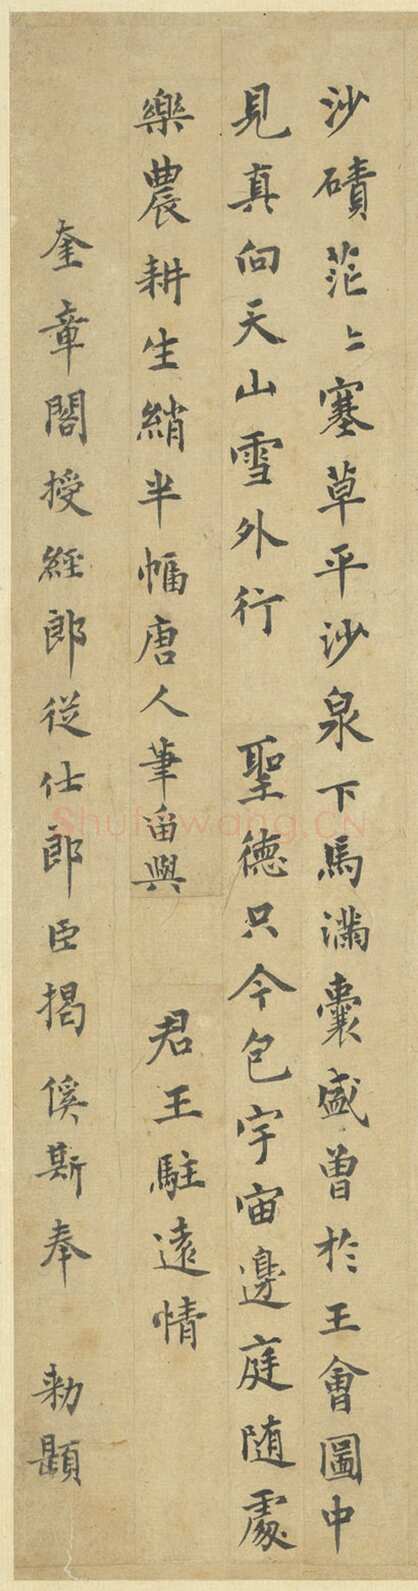 沙磧茫〻塞草平沙泉下馬滿囊盛曽於王會圖中
見真向天山雪外行 聖德只今包宇宙邊庭随處
樂農耕生綃半幅唐人筆畱與 君王駐遠情
奎章閣授經郎從仕郎臣揭傒斯奉 勅題
ShuFawang.CN